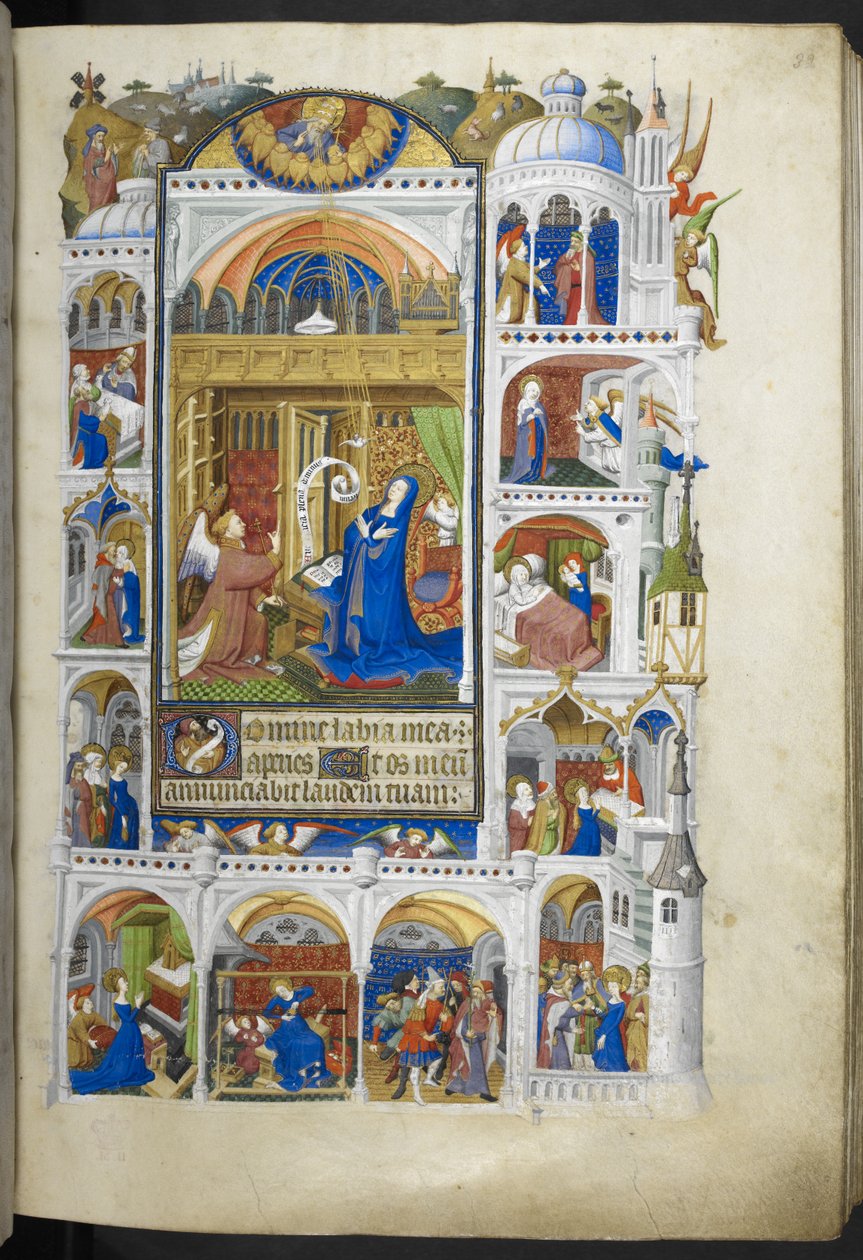 32
plena dominus
Domine labia mea :·
apries Et os meū
annunciabit laudem tuam :·